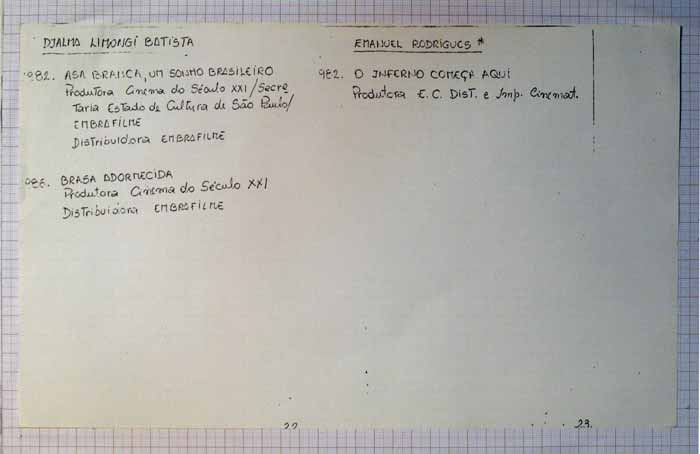 DJALMA LIMONGI BATISTA
982. ASA BRANCA, UM SONHO BRASILEIRO
Produtora Cinema do Século XXI/Secre
Taria Estado de Cultura de São Paulo/
EMBRAFILME
Distribuidora EMBRAFILME
986. BRASA ADORMECIDA
Produtora Cinema do Século XXI
Distribuidora EMBRAFILME
22
EMANUEL RODRIGUES *
982. O INFERNO COMEÇA AQUI
Produtora E.C. Dist. e Imp. Cinemat.
23.